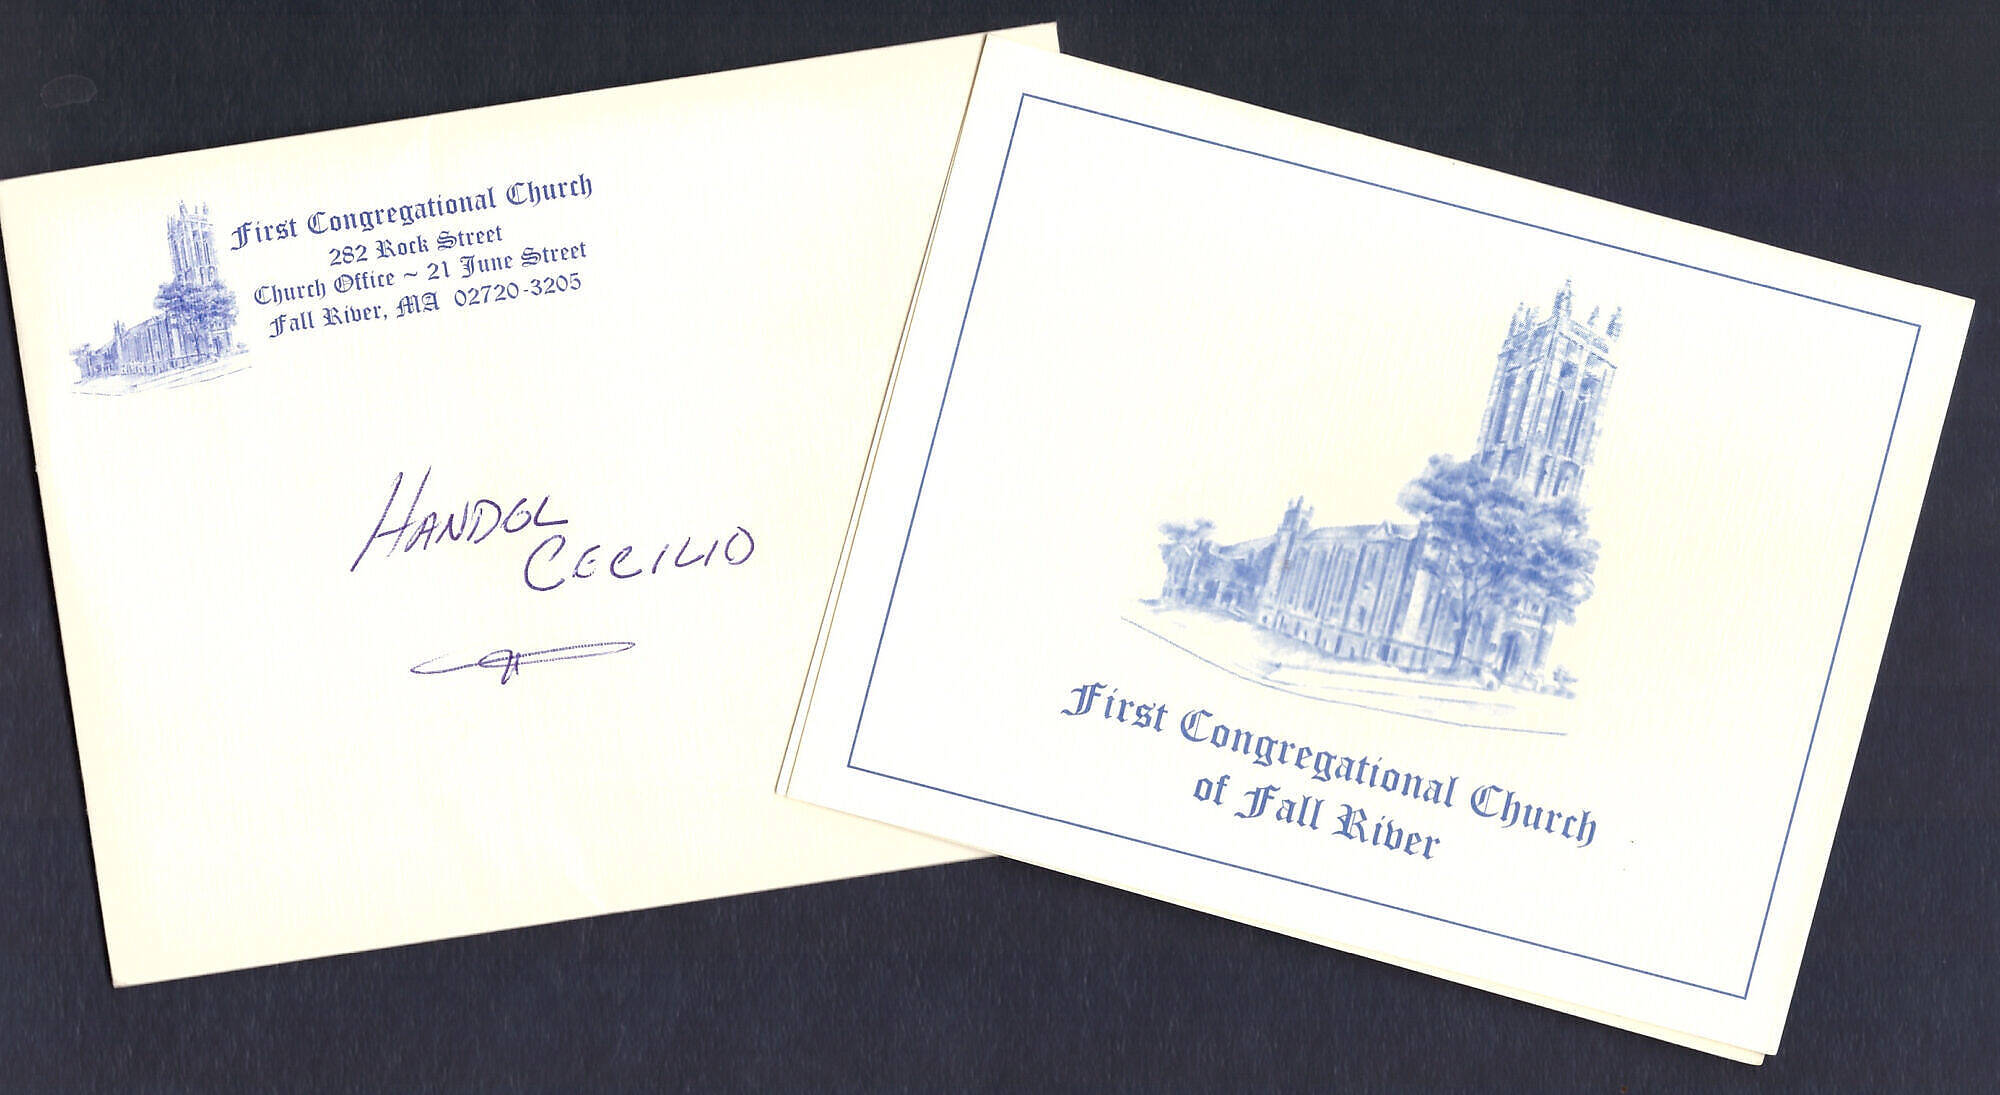 First Congregational Church
282 Rock Street
Church Office ~ 21 June Street
Fall River, MA 02720-3205
HANDEL
CECILIO
First Congregational Church
of Fall River